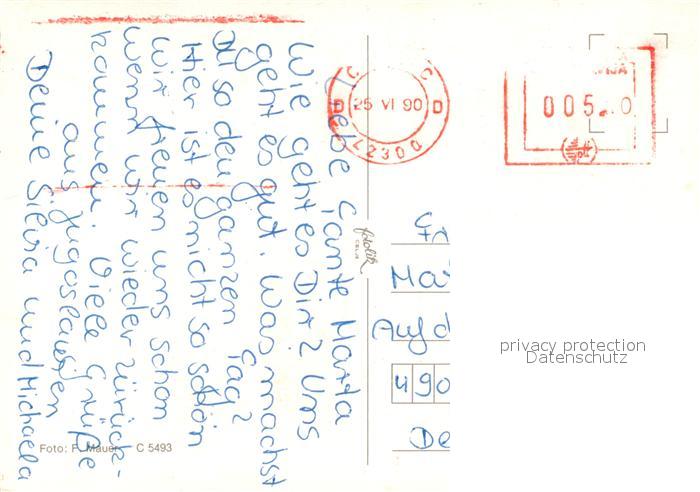 Liebe Tante Marta
Wie geht es Dir? Uns
geht es gut. Was machst
Du so den ganzen Tag?
Hier ist es nicht so schön
Wir freuen uns schon
wenn wir wieder zurück-
kommen. Viele Grüße
aus Jugoslawien
Deine Silvia und Michaela
Foto: F. Mauer C 5493
fotolik
CELJE
25 VI 90
42300
005
Auf d
490
De
privacy protection
Datenschutz